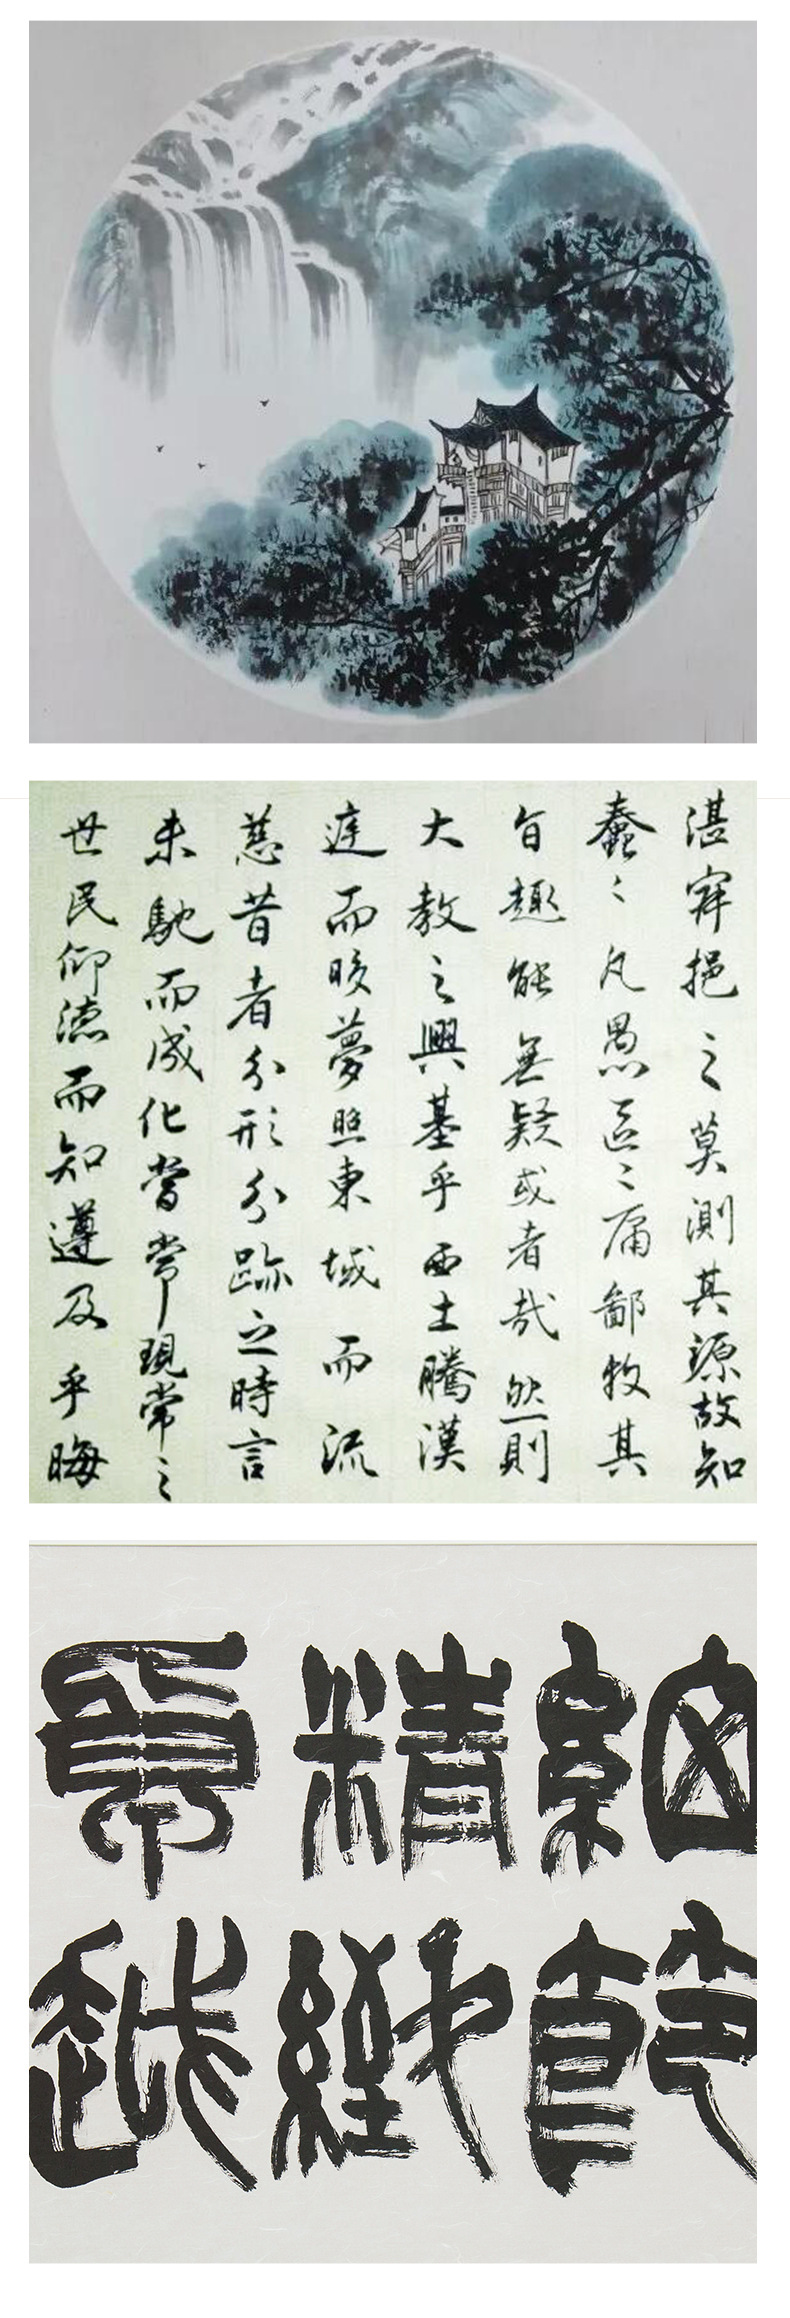 湛寂挹之莫測其源故知
蠢〻凡愚區〻庸鄙投其
旨趣能無疑或者哉然則
大教之興基乎西土騰漢
庭而皎夢照東域而流
慈昔者分形分跡之時言
未馳而成化當常現常之
世民仰德而知遵及乎晦
細
精緻
越